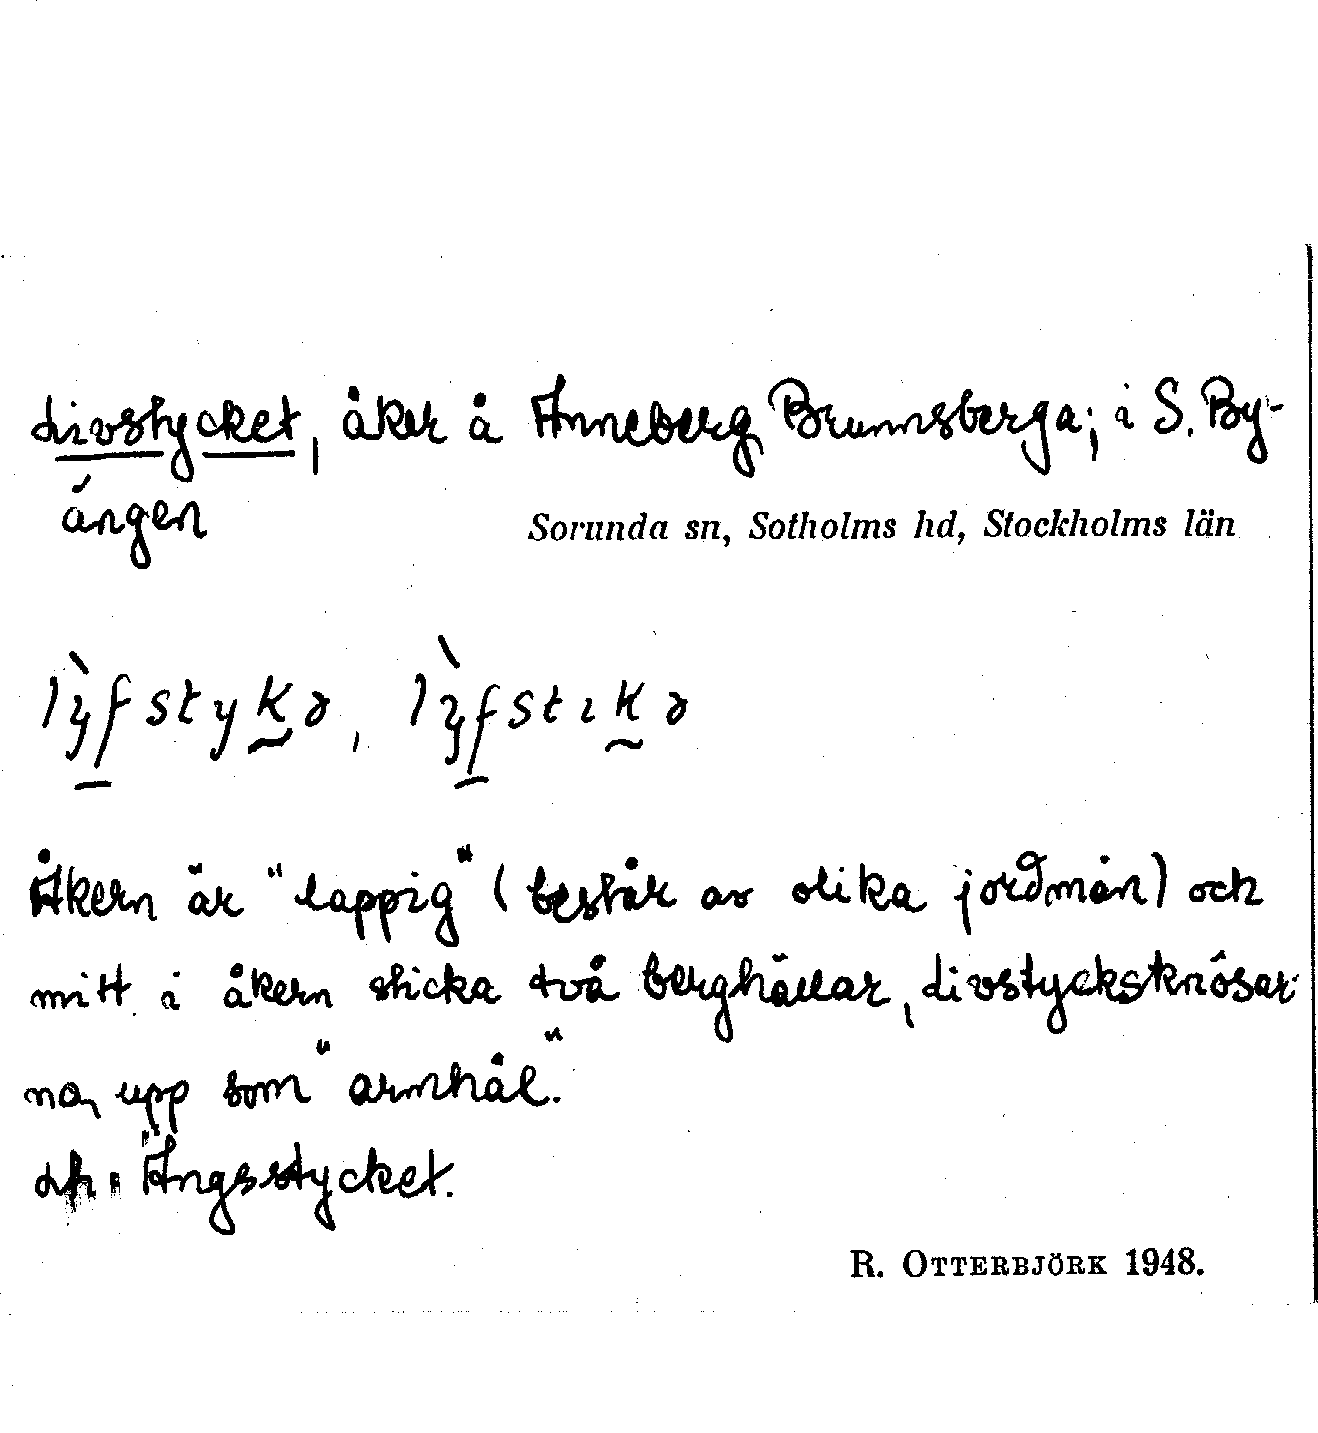 Livstycket, åker å Anneberg Brunnsberga; i S. By-
ängen
Sorunda sn, Sotholms hd, Stockholms län
Åkern är "lappig" (består av olika jordmån) och
mitt i åkern sticka två berghällar, Livstycksknösar-
na, upp som "armhål".
Ängsstycket.
R. OTTERBJÖRK 1948.